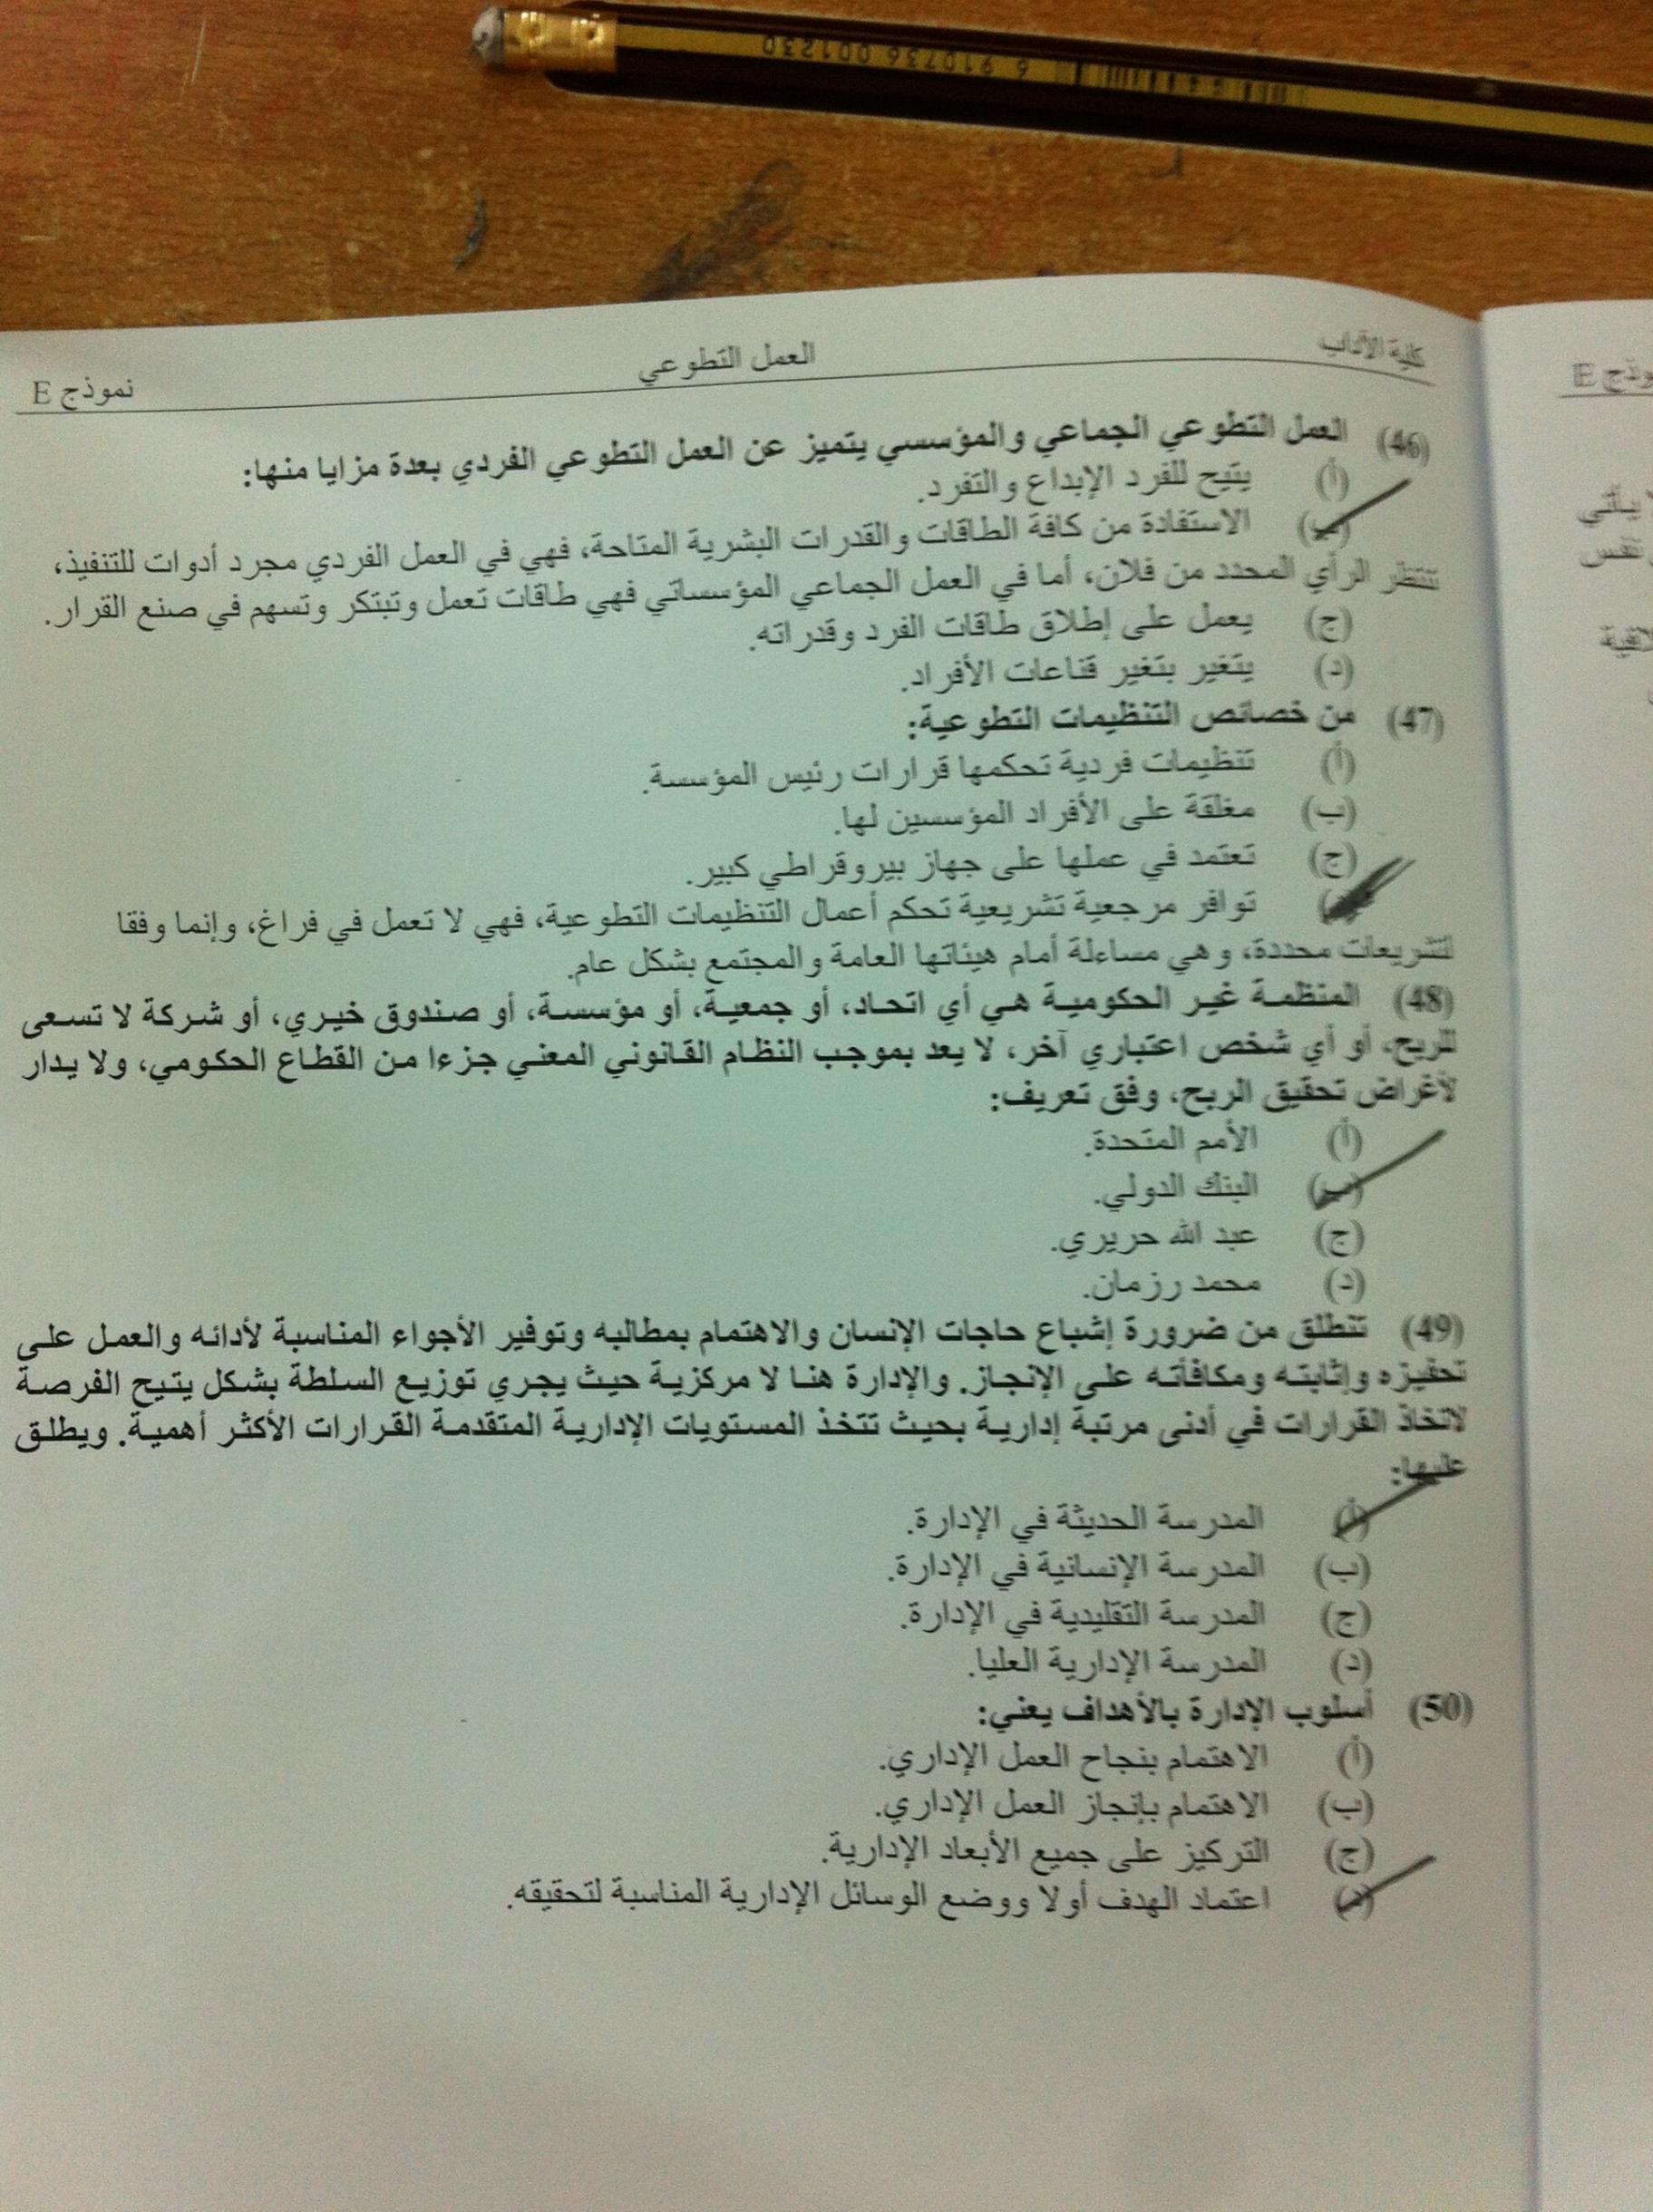 6 910736 001230
كلية الآداب
العمل التطوعي
نموذج E
(46) العمل التطوعي الجماعي والمؤسسي يتميز عن العمل التطوعي الفردي بعدة مزايا منها:
(أ) يتيح للفرد الإبداع والتفرد.
(ب) الاستفادة من كافة الطاقات والقدرات البشرية المتاحة، فهي في العمل الفردي مجرد أدوات للتنفيذ،
تنتظر الرأي المحدد من فلان، أما في العمل الجماعي المؤسساتي فهي طاقات تعمل وتبتكر وتسهم في صنع القرار.
(ج) يعمل على إطلاق طاقات الفرد وقدراته.
(د) يتغير بتغير قناعات الأفراد.
(47) من خصائص التنظيمات التطوعية:
(أ) تنظيمات فردية تحكمها قرارات رئيس المؤسسة.
(ب) مغلقة على الأفراد المؤسسين لها.
(ج) تعتمد في عملها على جهاز بيروقراطي كبير.
(د) توافر مرجعية تشريعية تحكم أعمال التنظيمات التطوعية، فهي لا تعمل في فراغ، وإنما وفقا
لتشريعات محددة، وهي مساءلة أمام هيئاتها العامة والمجتمع بشكل عام.
(48) المنظمة غير الحكومية هي أي اتحاد، أو جمعية، أو مؤسسة، أو صندوق خيري، أو شركة لا تسعى
للربح، أو أي شخص اعتباري آخر، لا يعد بموجب النظام القانوني المعني جزءا من القطاع الحكومي، ولا يدار
لأغراض تحقيق الربح، وفق تعريف:
(أ) الأمم المتحدة.
(ب) البنك الدولي.
(ج) عبد الله حريري.
(د) محمد رزمان.
(49) تنطلق من ضرورة إشباع حاجات الإنسان والاهتمام بمطالبه وتوفير الأجواء المناسبة لأدائه والعمل على
تحفيزه وإثابته ومكافأته على الإنجاز. والإدارة هنا لا مركزية حيث يجري توزيع السلطة بشكل يتيح الفرصة
لاتخاذ القرارات في أدنى مرتبة إدارية بحيث تتخذ المستويات الإدارية المتقدمة القرارات الأكثر أهمية. ويطلق
عليها:
(أ) المدرسة الحديثة في الإدارة.
(ب) المدرسة الإنسانية في الإدارة.
(ج) المدرسة التقليدية في الإدارة.
(د) المدرسة الإدارية العليا.
(50) أسلوب الإدارة بالأهداف يعني:
(أ) الاهتمام بنجاح العمل الإداري.
(ب) الاهتمام بإنجاز العمل الإداري.
(ج) التركيز على جميع الأبعاد الإدارية.
(د) اعتماد الهدف أولا ووضع الوسائل الإدارية المناسبة لتحقيقه.